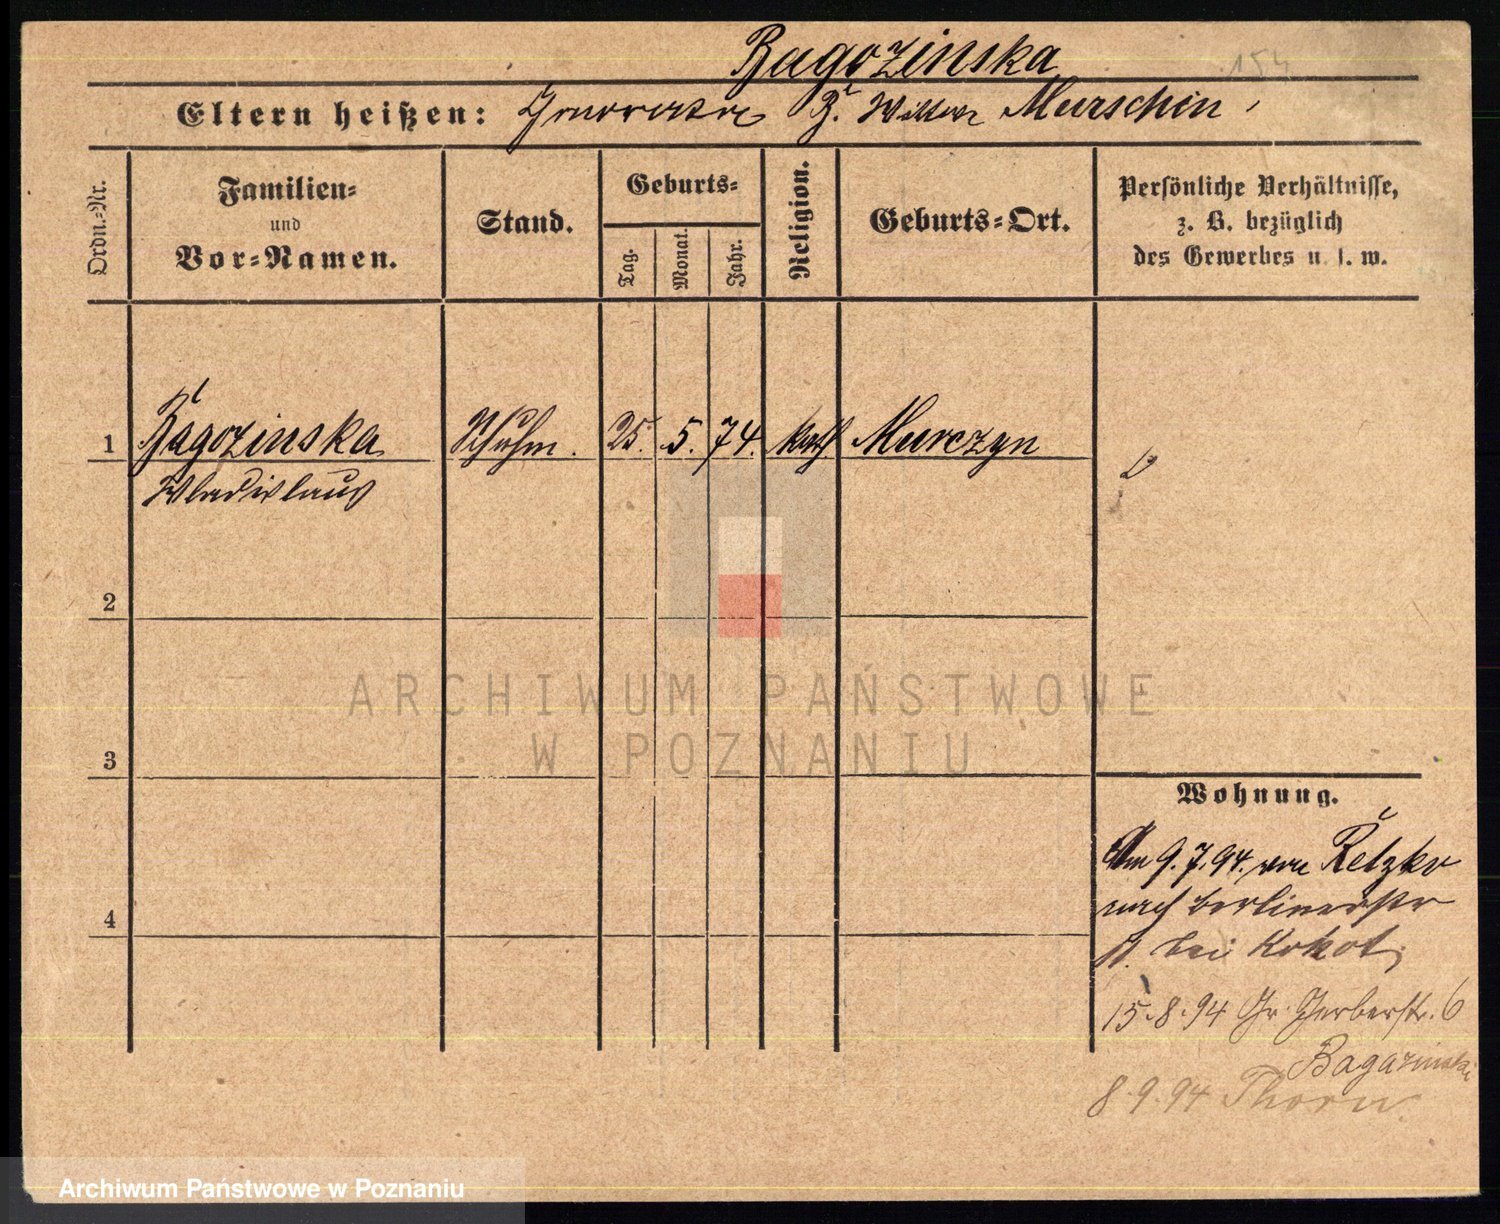 Bagozinska
154
Eltern heißen: B. Murschin
Ordn.-Nr.
Familien-
und
Vor-Namen.
Stand.
Geburts-
Tag.
Monat.
Jahr.
Religion.
Geburts-Ort.
Persönliche Verhältnisse,
z. B. bezüglich
des Gewerbes u. s. w.
1 Bagozinska Schuhm. 25. 5. 74. kath Murczyn
Wladislaus
2
3
4
Wohnung.
Am 9.7.94. von Retzko
nach Berlinerstr
11. bei Kokot
15.8.94 Gr. Gerberstr. 6
Bagazinski
8.9.94 Thorn.
ARCHIWUM PAŃSTWOWE
W POZNANIU
Archiwum Państwowe w Poznaniu